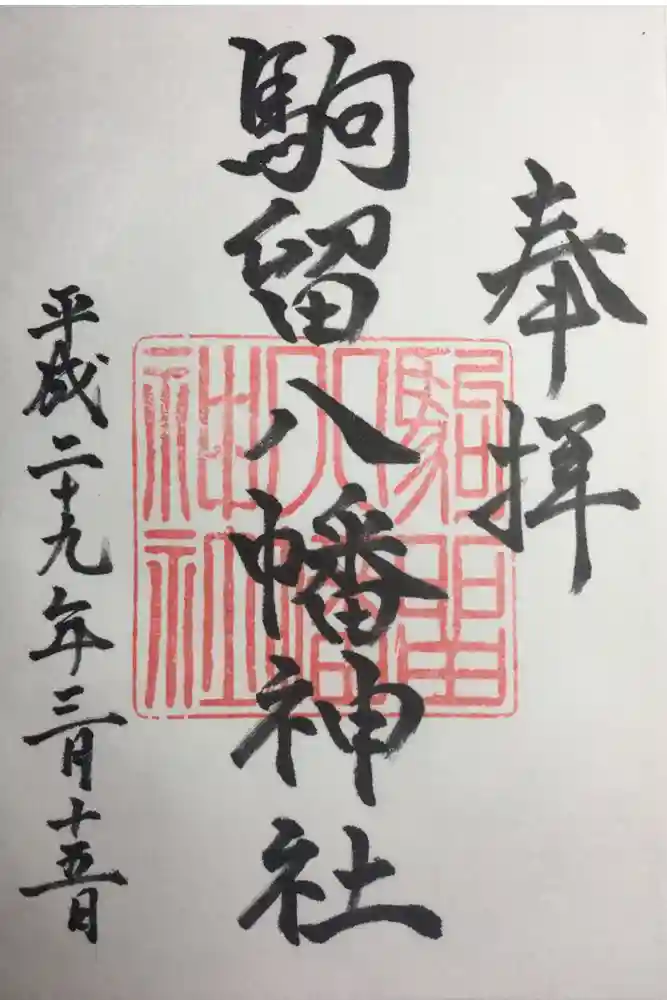 奉拝
駒留八幡神社
平成二十九年三月十五日
駒留
八幡
神社